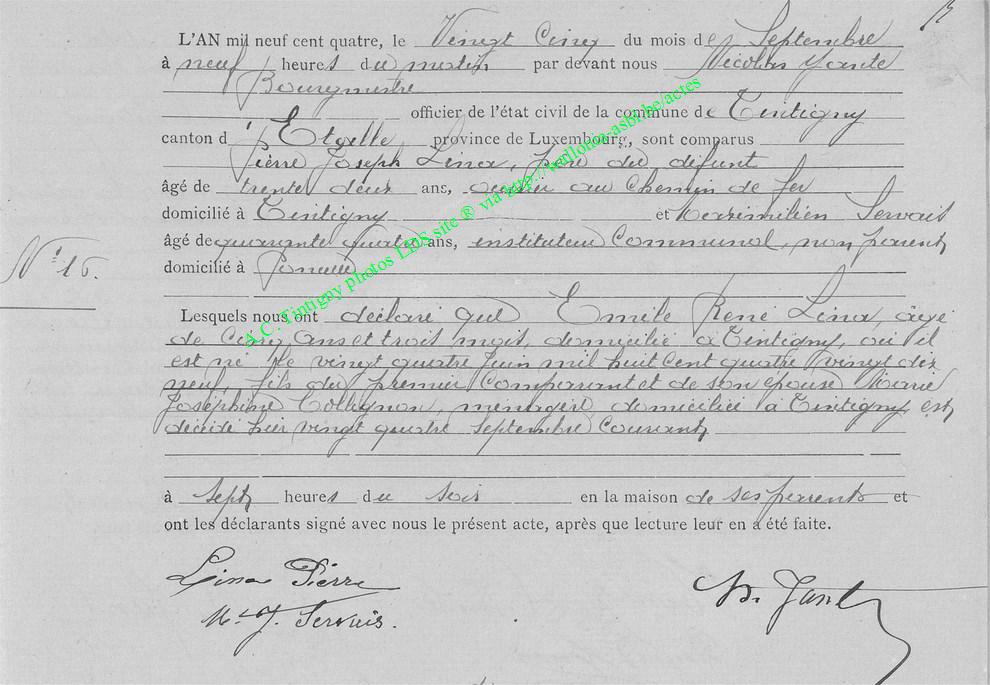 L'AN mil neuf cent quatre, le Vingt Cinq du mois de Septembre
à neuf heures du matin par devant nous Nicolas Jante
Bourgmestre
officier de l'état civil de la commune de Tintigny
canton d' Etalle province de Luxembourg, sont comparus
Pierre Joseph Lina, père du défunt
âgé de trente deux ans, ouvrier au chemin de fer
domicilié à Tintigny et Maximilien Servais
âgé de quarante quatre ans, instituteur Communal, non parent
domicilié à
N° 16.
Lesquels nous ont déclaré que Emile René Lina, âgé
de Cinq Ans et trois mois, domicilié à Tintigny, où il
est né le vingt quatre Juin mil huit cent quatre vingt dix
neuf, fils du premier Comparant et de son épouse Marie
Joséphine Collignon, ménagère domiciliée à Tintigny est
décédé hier vingt quatre septembre Courant
à sept heures du soir en la maison de ses parents et
ont les déclarants signé avec nous le présent acte, après que lecture leur en a été faite.
Lina Pierre
N. Jante
Mt J. Servais.
A.C. Tintigny photos LDS site ® via http://wallonia-asbl.be/actes